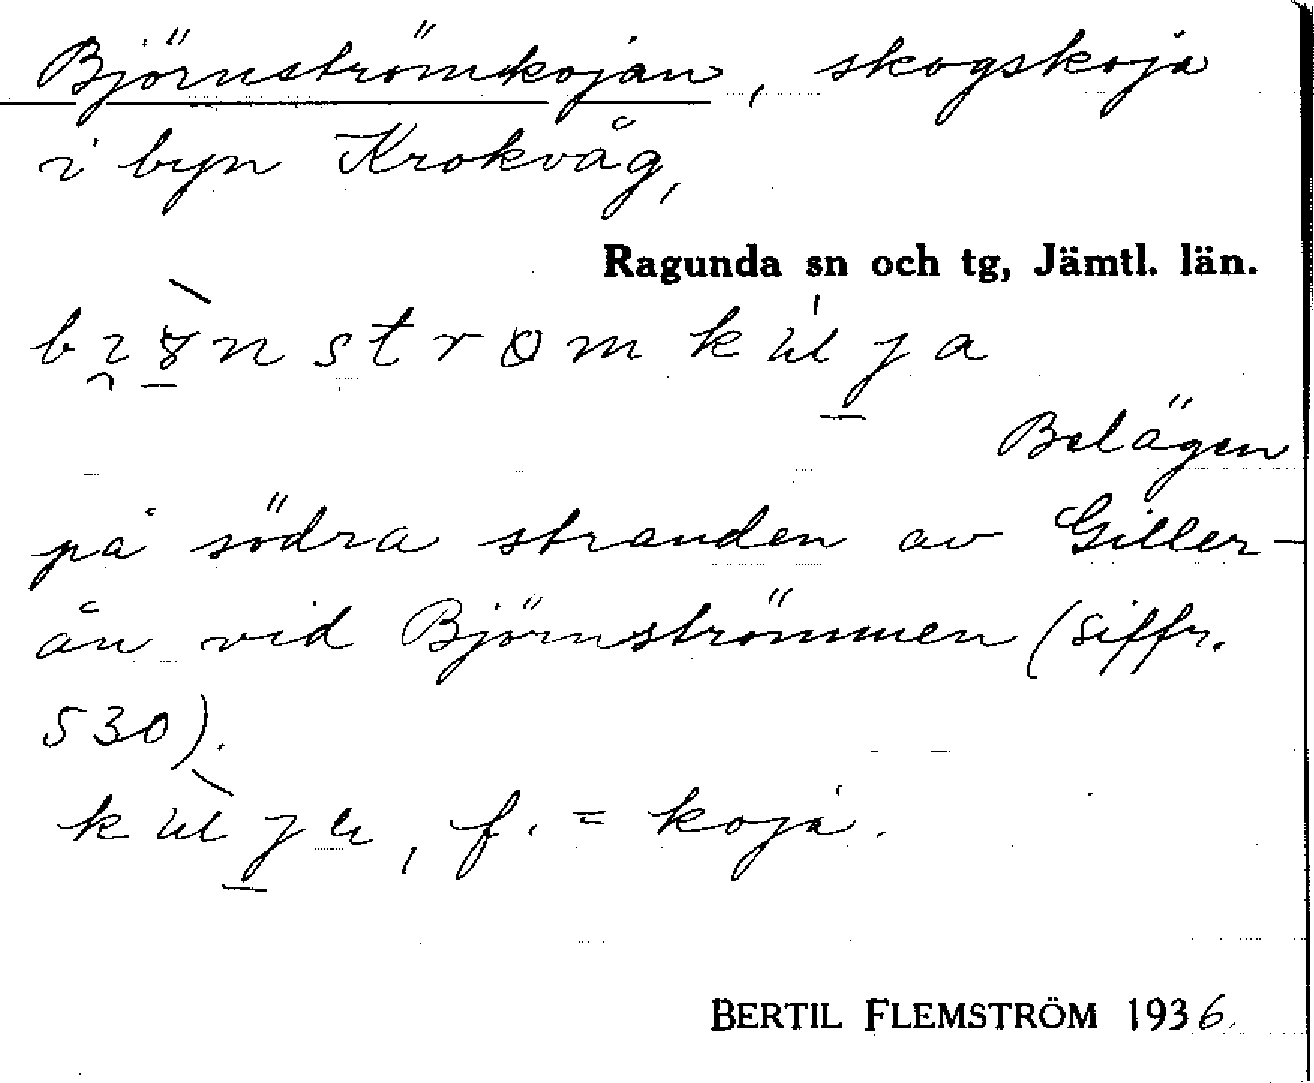 Björnströmkojan, skogskoja
i byn Krokvåg,
Ragunda sn och tg, Jämtl. län.
Belägen
på södra stranden av Giller-
ån vid Björnströmmen (siffr.
530).
f. = koja.
BERTIL FLEMSTRÖM 1936.